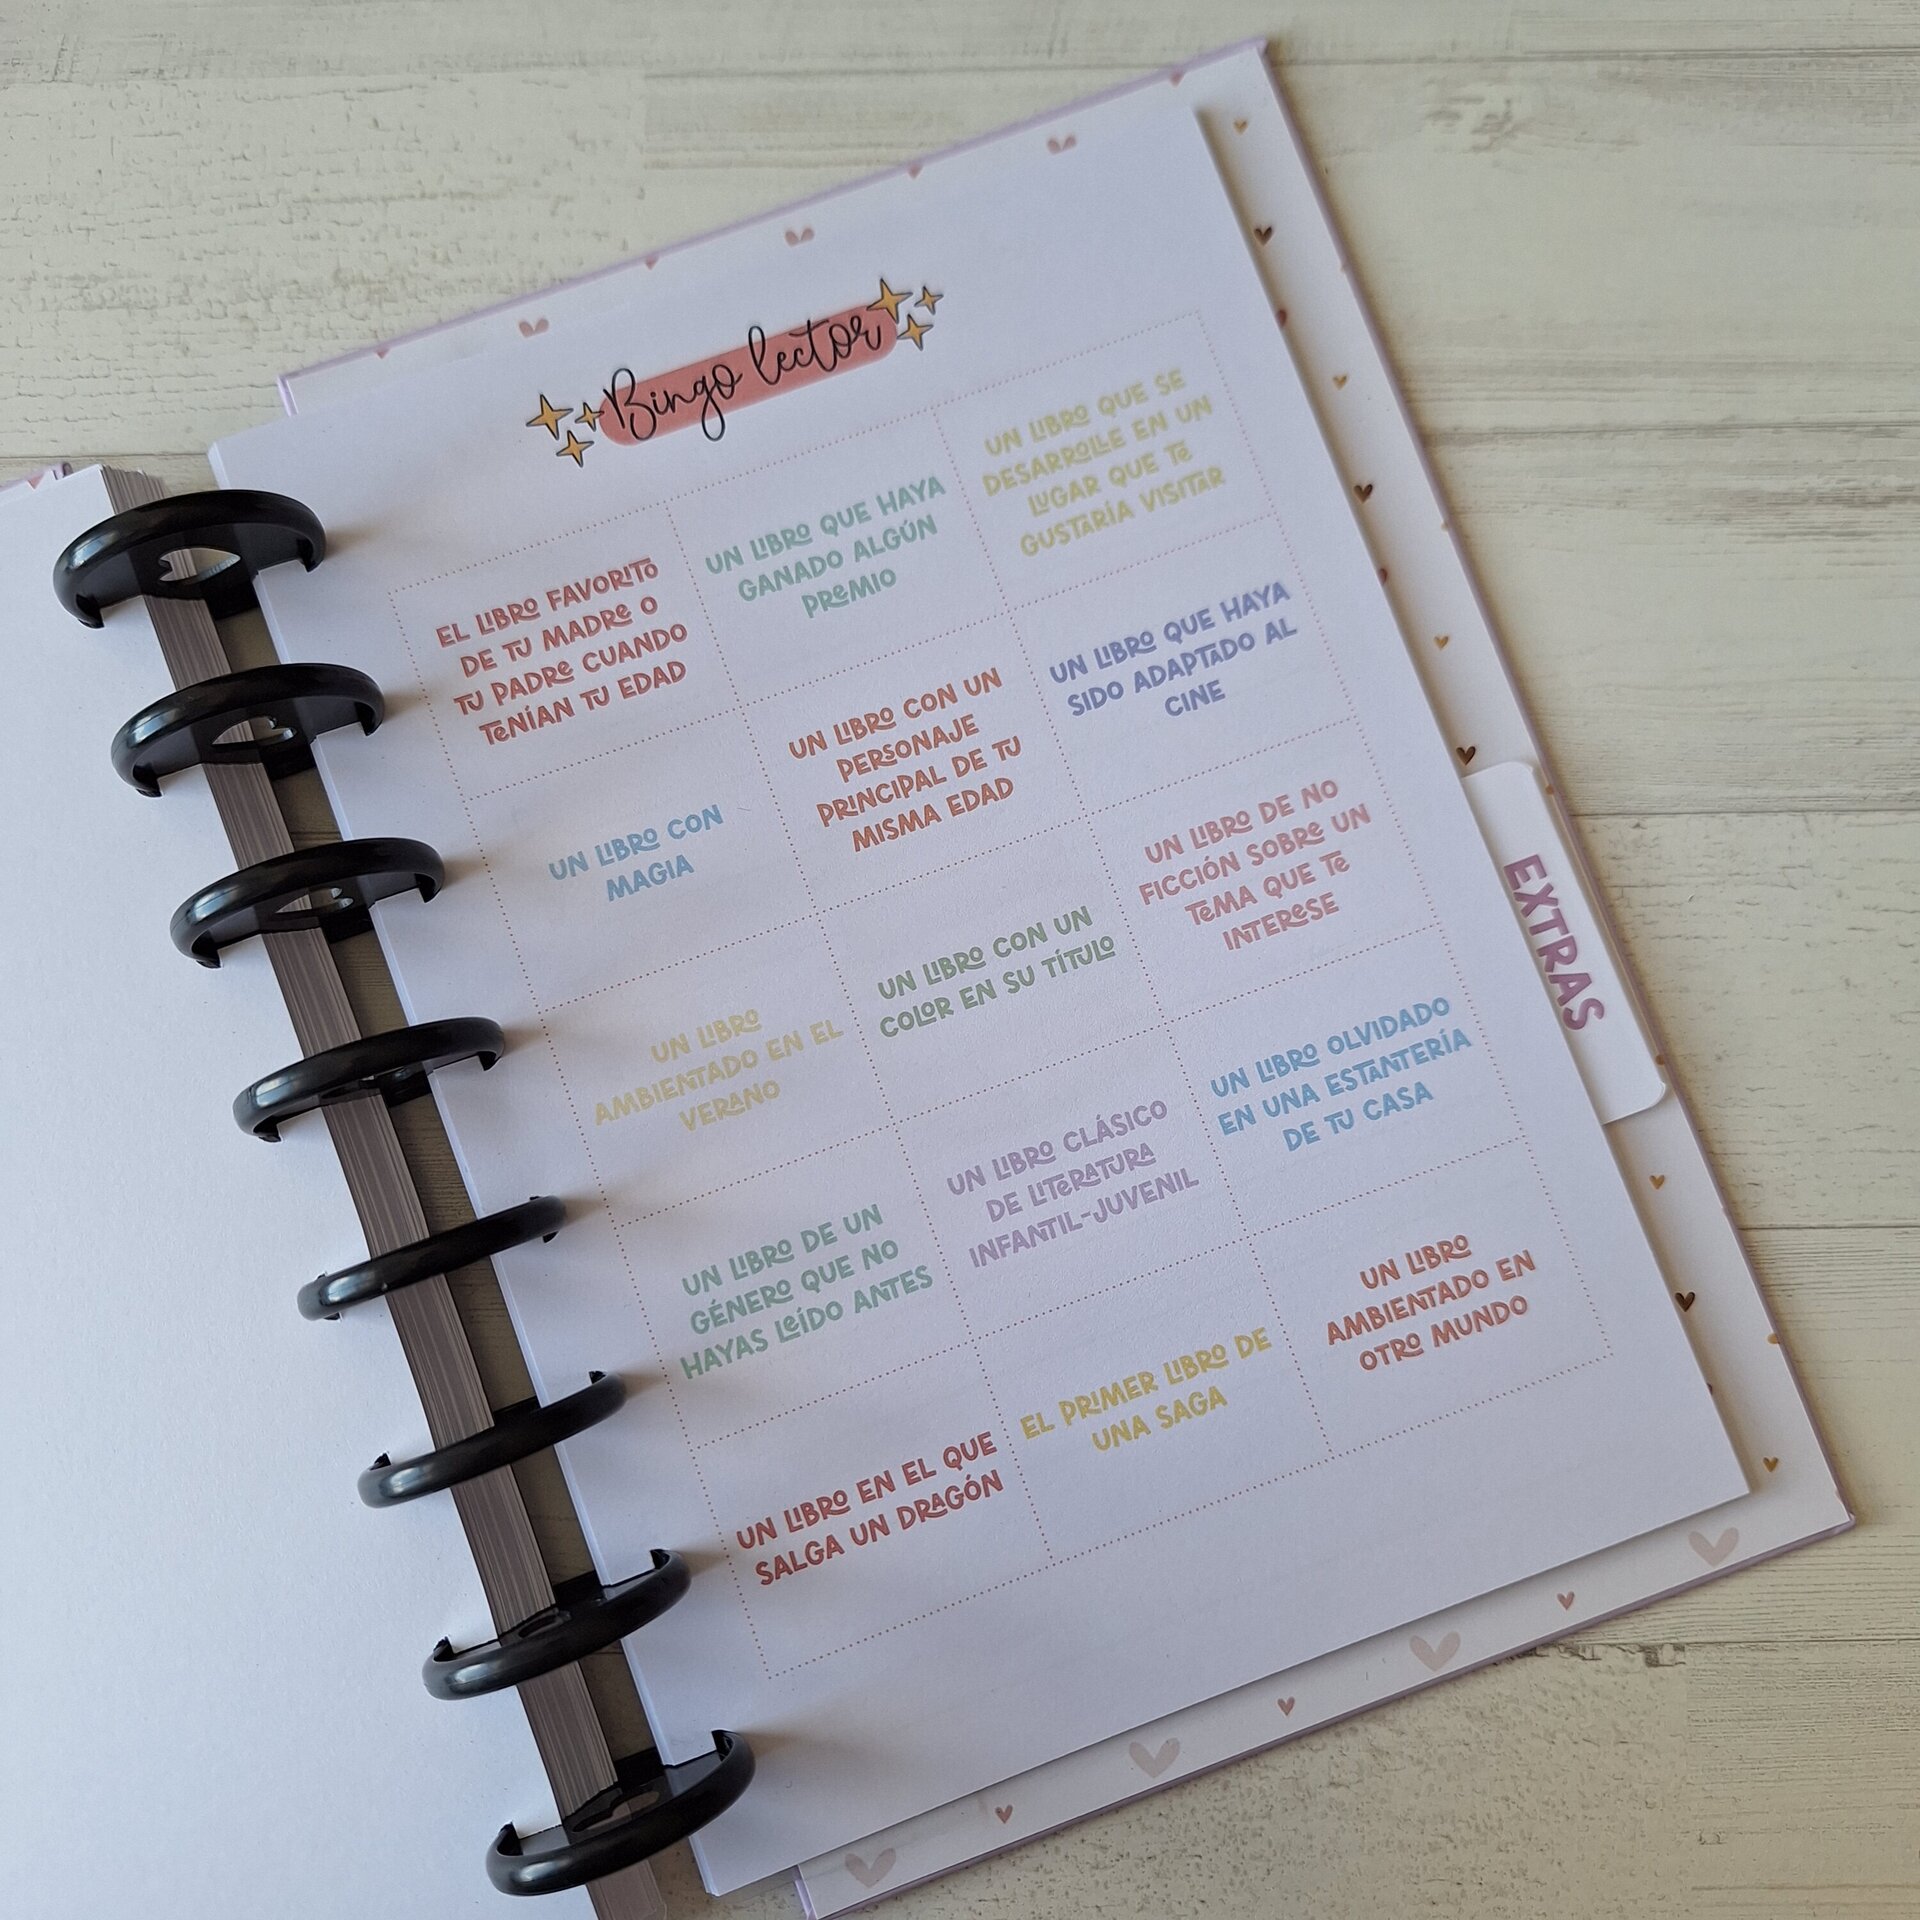 Bingo lector
EL LIBRO FAVORITO
DE TU MADRE O
TU PADRE CUANDO
TENÍAN TU EDAD
UN LIBRO QUE HAYA
GANADO ALGÚN
PREMIO
UN LIBRO QUE SE
DESARROLLE EN UN
LUGAR QUE TE
GUSTARÍA VISITAR
UN LIBRO CON
MAGIA
UN LIBRO CON UN
PERSONAJE
PRINCIPAL DE TU
MISMA EDAD
UN LIBRO QUE HAYA
SIDO ADAPTADO AL
CINE
UN LIBRO
AMBIENTADO EN EL
VERANO
UN LIBRO CON UN
COLOR EN SU TÍTULO
UN LIBRO DE NO
FICCIÓN SOBRE UN
TEMA QUE TE
INTERESE
UN LIBRO DE UN
GÉNERO QUE NO
HAYAS LEÍDO ANTES
UN LIBRO CLÁSICO
DE LITERATURA
INFANTIL-JUVENIL
UN LIBRO OLVIDADO
EN UNA ESTANTERÍA
DE TU CASA
UN LIBRO EN EL QUE
SALGA UN DRAGÓN
EL PRIMER LIBRO DE
UNA SAGA
UN LIBRO
AMBIENTADO EN
OTRO MUNDO
EXTRAS